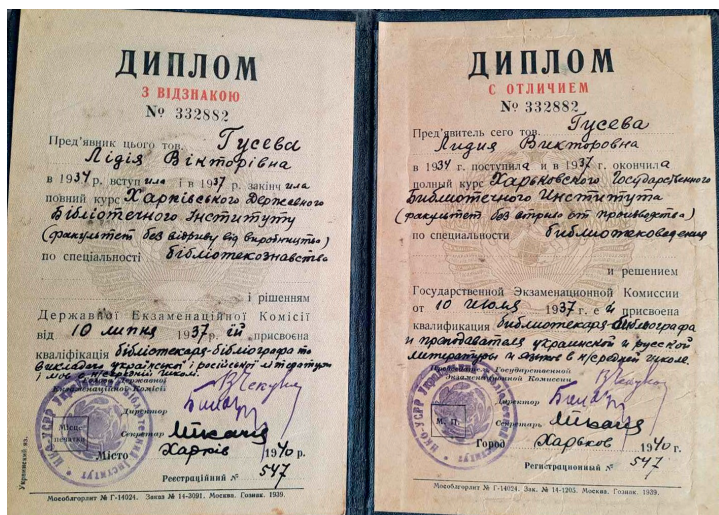 ДИПЛОМ
З ВІДЗНАКОЮ
№ 332882
Пред'явник цього тов. Гусева
Лідія Вікторівна
в 1934 р. вступила і в 1937 р. закінчила
повний курс Харківського Державного
Бібліотечного Інституту
(факультет без відриву від виробництва)
по спеціальності бібліотекознавство
і рішенням
Державної Екзаменаційної Комісії
від 10 липня 1937 р. їй присвоєна
кваліфікація бібліотекаря-бібліографа та
викладача української і російської літератури
і мови в н/середній школі
Державної
Екзаменаційної Комісії
Директор
Місце
печатки
Секретар
Місто Харків 1940 р.
Реєстраційний № 547
Украинский яз.
Мособлгорлит № Г-14024. Заказ № 14-3091. Москва. Гознак. 1939.
ДИПЛОМ
С ОТЛИЧИЕМ
№ 332882
Пред'явитель сего тов. Гусева
Лидия Викторовна
в 1934 г. поступила и в 1937 г. окончила
полный курс Харьковского Государственного
Библиотечного Института
(факультет без отрыва от производства)
по специальности библиотековедение
и решением
Государственной Экзаменационной Комиссии
от 10 июля 1937 г. ей присвоена
квалификация библиотекаря-библиографа
и преподавателя украинской и русской
литературы и языка в н/средней школе
Председатель Государственной
Экзаменационной Комиссии
Директор
М. П.
Секретарь
Город Харьков 1940 г.
Регистрационный № 547
Мособлгорлит № Г-14024. Зак. № 14-1205. Москва. Гознак. 1939.